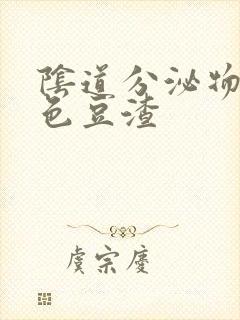 陰道分泌物
色豆渣
虞宗慶